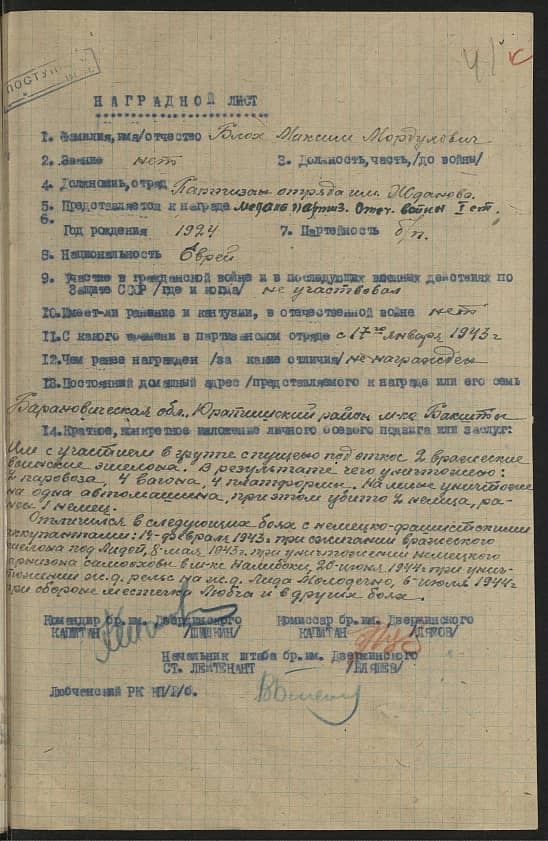 ПОСТУП
41 к
НАГРАДНОЙ ЛИСТ
1. Фамилия, имя/отчество Блох Максим Мордухович
2. Звание нет 3. Должность, часть, /до войны/
4. Должность, отряд Партизан отряда им. Жданова.
5. Представляется к награде медаль партиз. Отеч. войны I ст.
6.
Год рождения 1924 7. Партейность б/п.
8. Национальность Еврей
9. Участие в гражданской войне и в последующих военных действиях по
Защите СССР /где и когда/ не участвовал
10. Имеет-ли ранение и контузии, в отечественной войне нет
11. С какого времени в партизанском отряде с 17го января 1943 г
12. Чем ранее награжден /за какие отличия/ не награжден
13. Постоянный домашный адрес /представляемого к награде или его семь
Барановическая обл. Юратишский район м-ко Бакшты
14. Краткое, конкретное изложение личного боевого подвига или заслуг:
Им с участием в группе спущено под откос 2 вражеские
воинские эшелона. В результате чего уничтожено:
2 паровоза, 4 вагона, 4 платформы. На мине уничтоже
на одна автомашина, при этом убито 2 немца, ра-
нен 1 немец.
Отличился в следующих боях с немецко-фашистскими
оккупантами: 14-февраля 1943г. при сжигании вражеского
эшелона под Лидой, 8-мая 1943г. при уничтожении немецкого
гарнизона самооховы в м-ке Налибоки, 20-июня 1944г. при унич-
тожении ж.д. рельс на ж.д. Лида Молодечно, 6-июля 1944г
при обороне местечка Любча и в других боях.
Командир бр. им. Дзержинского Комиссар бр. им. Дзержинского
КАПИТАН /ШИШКИН/ КАПИТАН /ЛЯХОВ/
Начальник штаба бр. им. Дзержинского
СТ. ЛЕЙТЕНАНТ /КЛЯШЕВ/
Любченский РК КП/б/б.